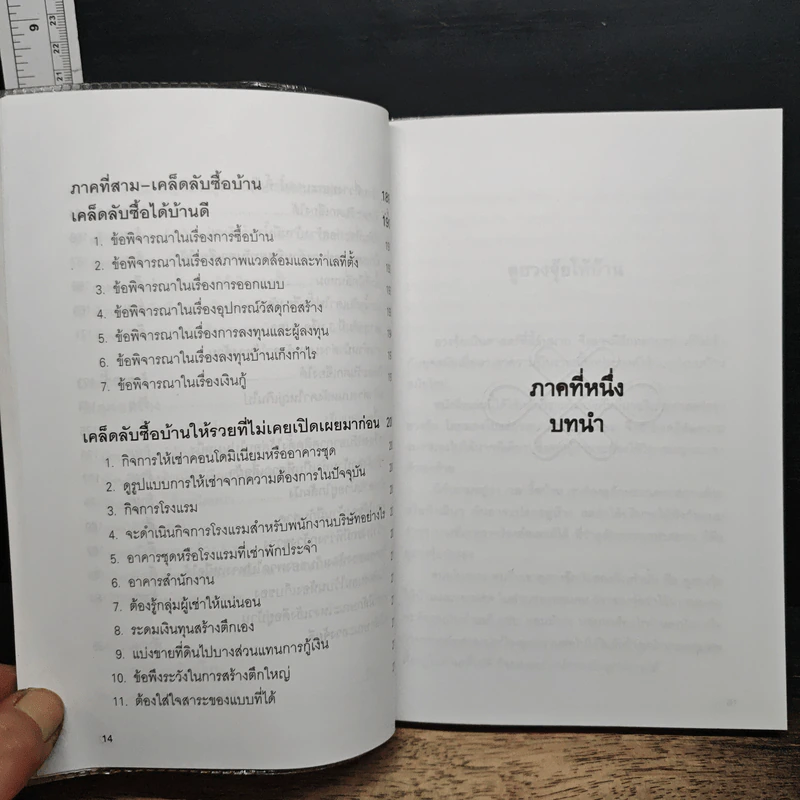 ภาคที่สาม-เคล็ดลับซื้อบ้าน
เคล็ดลับซื้อได้บ้านดี
1. ข้อพิจารณาในเรื่องการซื้อบ้าน
2. ข้อพิจารณาในเรื่องสภาพแวดล้อมและทำเลที่ตั้ง
3. ข้อพิจารณาในเรื่องการออกแบบ
4. ข้อพิจารณาในเรื่องอุปกรณ์วัสดุก่อสร้าง
5. ข้อพิจารณาในเรื่องการลงทุนและผู้ลงทุน
6. ข้อพิจารณาในเรื่องลงทุนบ้านเก็งกำไร
7. ข้อพิจารณาในเรื่องเงินกู้
เคล็ดลับซื้อบ้านให้รวยที่ไม่เคยเปิดเผยมาก่อน
1. กิจการให้เช่าคอนโดมิเนียมหรืออาคารชุด
2. ดูรูปแบบการให้เช่าจากความต้องการในปัจจุบัน
3. กิจการโรงแรม
4. จะดำเนินกิจการโรงแรมสำหรับพนักงานบริษัทอย่างไร
5. อาคารชุดหรือโรงแรมที่เช่าพักประจำ
6. อาคารสำนักงาน
7. ต้องรู้กลุ่มผู้เช่าให้แน่นอน
8. ระดมเงินทุนสร้างตึกเอง
9. แบ่งขายที่ดินไปบางส่วนแทนการกู้เงิน
10. ข้อพึงระวังในการสร้างตึกใหญ่
11. ต้องใส่ใจสาระของแบบที่ได้
14
ภาคที่หนึ่ง
บทนำ
9
23
22
21